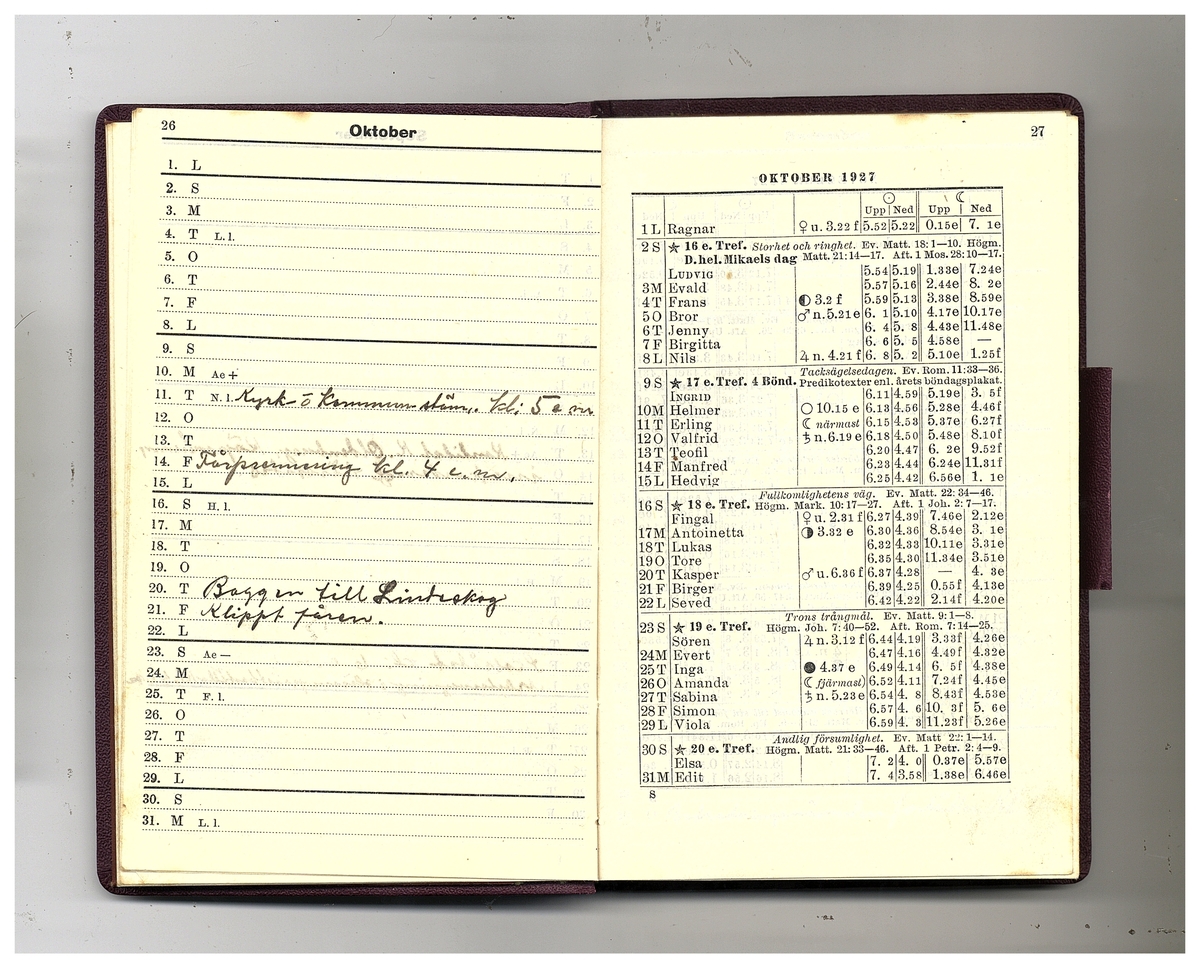 26
Oktober
1. L
2. S
3. M
4. T L. l.
5. O
6. T
7. F
8. L
9. S
10. M Ae +
11. T N. l. Kyrk- o kommunstäm. kl: 5 e m
12. O
13. T
14. F Förprenning kl. 4 e. m.
15. L
16. S H. l.
17. M
18. T
19. O
20. T Baggen till Lindeskog
21. F Klippt fåren.
22. L
23. S Ae —
24. M
25. T F. l.
26. O
27. T
28. F
29. L
30. S
31. M L. l.
27
OKTOBER 1927
☉ ☾
Upp Ned Upp Ned
1 L Ragnar ♀ u. 3.22 f 5.52 5.22 0.15e 7. 1e
2 S ★ 16 e. Tref. Storhet och ringhet. Ev. Matt. 18: 1—10. Högm.
D. hel. Mikaels dag Matt. 21: 14—17. Aft. 1 Mos. 28: 10—17.
LUDVIG 5.54 5.19 1.33e 7.24e
3 M Evald 5.57 5.16 2.44e 8. 2e
4 T Frans ◐ 3.2 f 5.59 5.13 3.38e 8.59e
5 O Bror ♂ n. 5.21 e 6. 1 5.10 4.17e 10.17e
6 T Jenny 6. 4 5. 8 4.43e 11.48e
7 F Birgitta 6. 6 5. 5 4.58e —
8 L Nils ♃ n. 4.21 f 6. 8 5. 2 5.10e 1.25f
Tacksägelsedagen. Ev. Rom. 11: 33—36.
9 S ★ 17 e. Tref. 4 Bönd. Predikotexter enl. årets böndagsplakat.
INGRID 6.11 4.59 5.19e 3. 5f
10 M Helmer ○ 10.15 e 6.13 4.56 5.28e 4.46f
11 T Erling ☾ närmast 6.15 4.53 5.37e 6.27f
12 O Valfrid ♄ n. 6.19 e 6.18 4.50 5.48e 8.10f
13 T Teofil 6.20 4.47 6. 2e 9.52f
14 F Manfred 6.23 4.44 6.24e 11.31f
15 L Hedvig 6.25 4.42 6.56e 1. 1e
Fullkomlighetens väg. Ev. Matt. 22: 34—46.
16 S ★ 18 e. Tref. Högm. Mark. 10: 17—27. Aft. 1 Joh. 2: 7—17.
Fingal ♀ u. 2.31 f 6.27 4.39 7.46e 2.12e
17 M Antoinetta ◑ 3.32 e 6.30 4.36 8.54e 3. 1e
18 T Lukas 6.32 4.33 10.11e 3.31e
19 O Tore 6.35 4.30 11.34e 3.51e
20 T Kasper ♂ u. 6.36 f 6.37 4.28 — 4. 3e
21 F Birger 6.39 4.25 0.55f 4.13e
22 L Seved 6.42 4.22 2.14f 4.20e
Trons trångmål. Ev. Matt. 9: 1—8.
23 S ★ 19 e. Tref. Högm. Joh. 7: 40—52. Aft. Rom. 7: 14—25.
Sören ♃ n. 3.12 f 6.44 4.19 3.33f 4.26e
24 M Evert 6.47 4.16 4.49f 4.32e
25 T Inga ● 4.37 e 6.49 4.14 6. 5f 4.38e
26 O Amanda ☾ fjärmast 6.52 4.11 7.24f 4.45e
27 T Sabina ♄ n. 5.23 e 6.54 4. 8 8.43f 4.53e
28 F Simon 6.57 4. 6 10. 3f 5. 6e
29 L Viola 6.59 4. 3 11.23f 5.26e
Andlig försumlighet. Ev. Matt 22: 1—14.
30 S ★ 20 e. Tref. Högm. Matt. 21: 33—46. Aft. 1 Petr. 2: 4—9.
Elsa 7. 2 4. 0 0.37e 5.57e
31 M Edit 7. 4 3.58 1.38e 6.46e
8